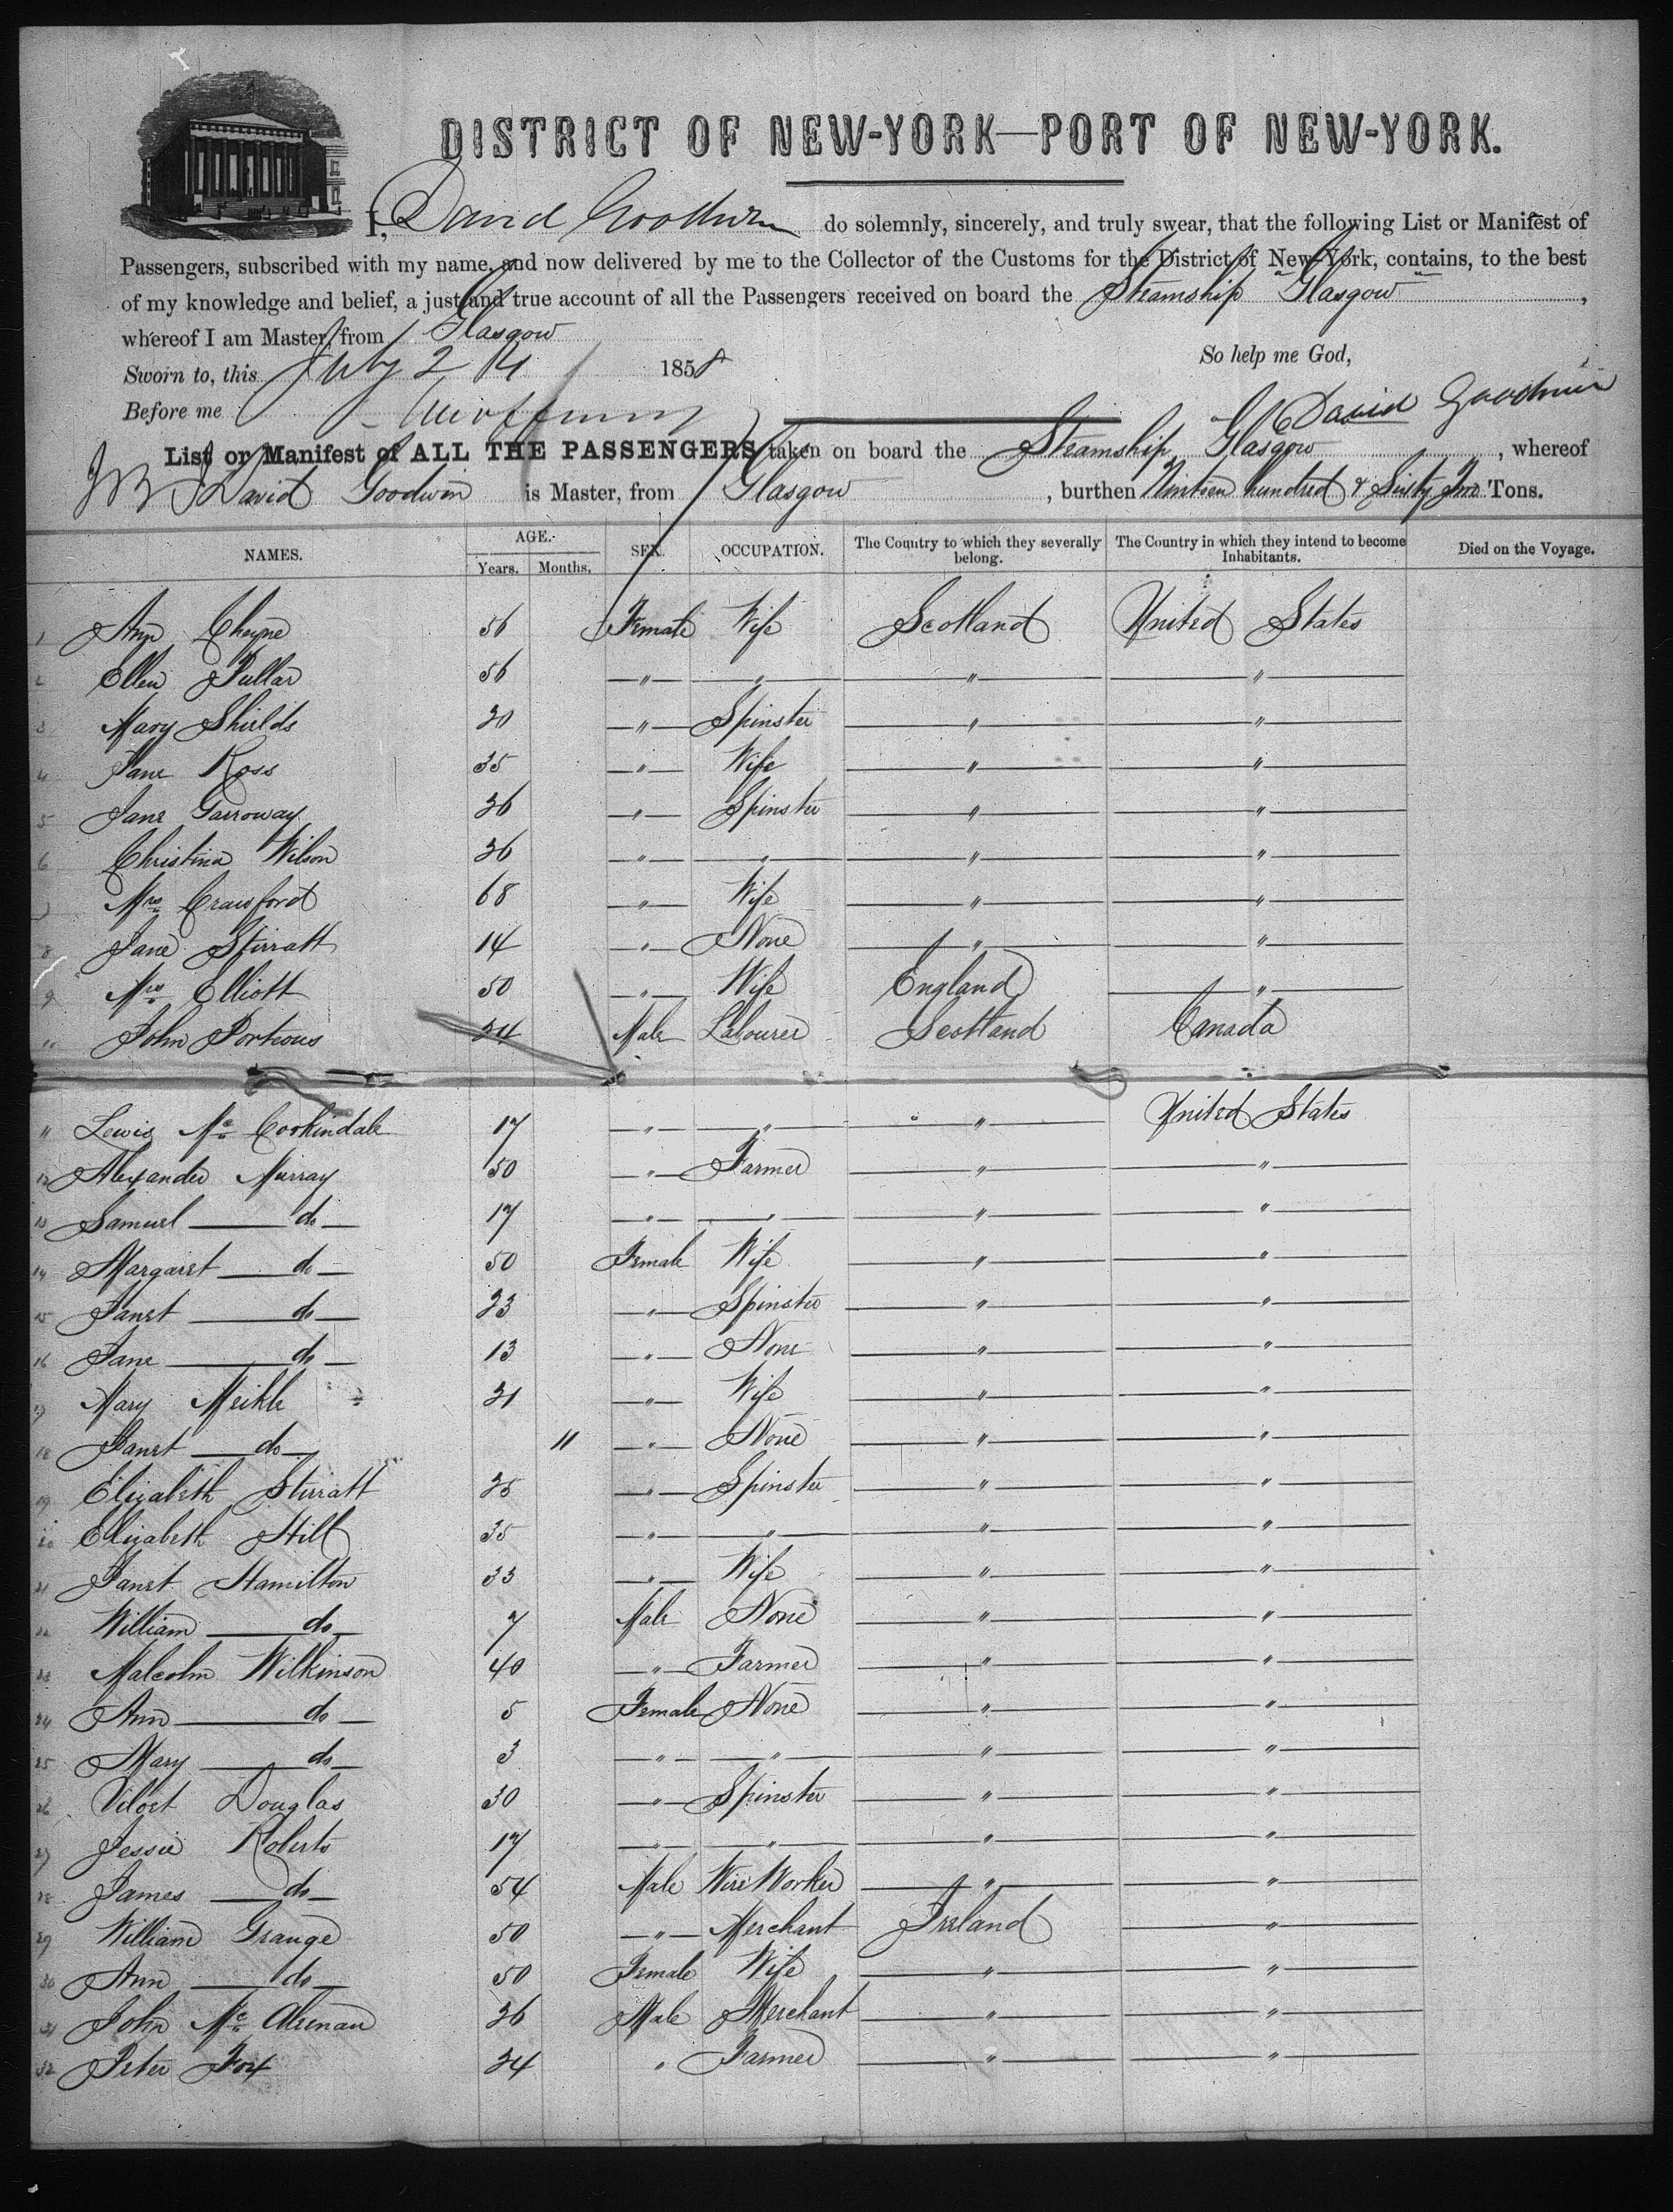 DISTRICT OF NEW-YORK—PORT OF NEW-YORK.
I, David Goodwin do solemnly, sincerely, and truly swear, that the following List or Manifest of
Passengers, subscribed with my name, and now delivered by me to the Collector of the Customs for the District of New-York, contains, to the best
of my knowledge and belief, a just and true account of all the Passengers received on board the Steamship "Glasgow"
whereof I am Master, from Glasgow
So help me God,
Sworn to, this July 24 1858
Before me
David Goodwin
List or Manifest of ALL THE PASSENGERS taken on board the Steamship Glasgow, whereof
David Goodwin is Master, from Glasgow, burthen Ninteen hundred & Sixty Two Tons.
NAMES. AGE. Years. Months. SEX. OCCUPATION. The Country to which they severally belong. The Country in which they intend to become Inhabitants. Died on the Voyage.
1 Ann Cheyne 56 Female Wife Scotland United States
2 Ellen Pullar 56 " " " "
3 Mary Shields 20 " Spinster " "
4 Jane Ross 35 " Wife " "
5 Jane Garroway 36 " Spinster " "
6 Christina Wilson 36 " " " "
7 Mrs Crawford 68 " Wife " "
8 Jane Stirratt 14 " None " "
9 Mrs Elliott 50 " Wife England "
10 John Porteous 24 Male Labourer Scotland Canada
11 Lewis Mc Corkindale 17 " " " United States
12 Alexander Murray 50 " Farmer " "
13 Samuel do 17 " " " "
14 Margaret do 50 Female Wife " "
15 Janet do 23 " Spinster " "
16 Jane do 13 " None " "
17 Mary Meikle 21 " Wife " "
18 Janet do 11 " None " "
19 Elizabeth Stirratt 25 " Spinster " "
20 Elizabeth Hill 35 " " " "
21 Janet Hamilton 33 " Wife " "
22 William do 7 Male None " "
23 Malcolm Wilkinson 40 " Farmer " "
24 Ann do 5 Female None " "
25 Mary do 3 " " " "
26 Douglas 30 " Spinster " "
27 Jessie Roberts 17 " " " "
28 James do 54 Male Wire Worker " "
29 William Grange 50 " Merchant Ireland "
30 Ann do 50 Female Wife " "
31 John Mc 36 Male Merchant " "
32 Peter Fox 24 " Farmer " "